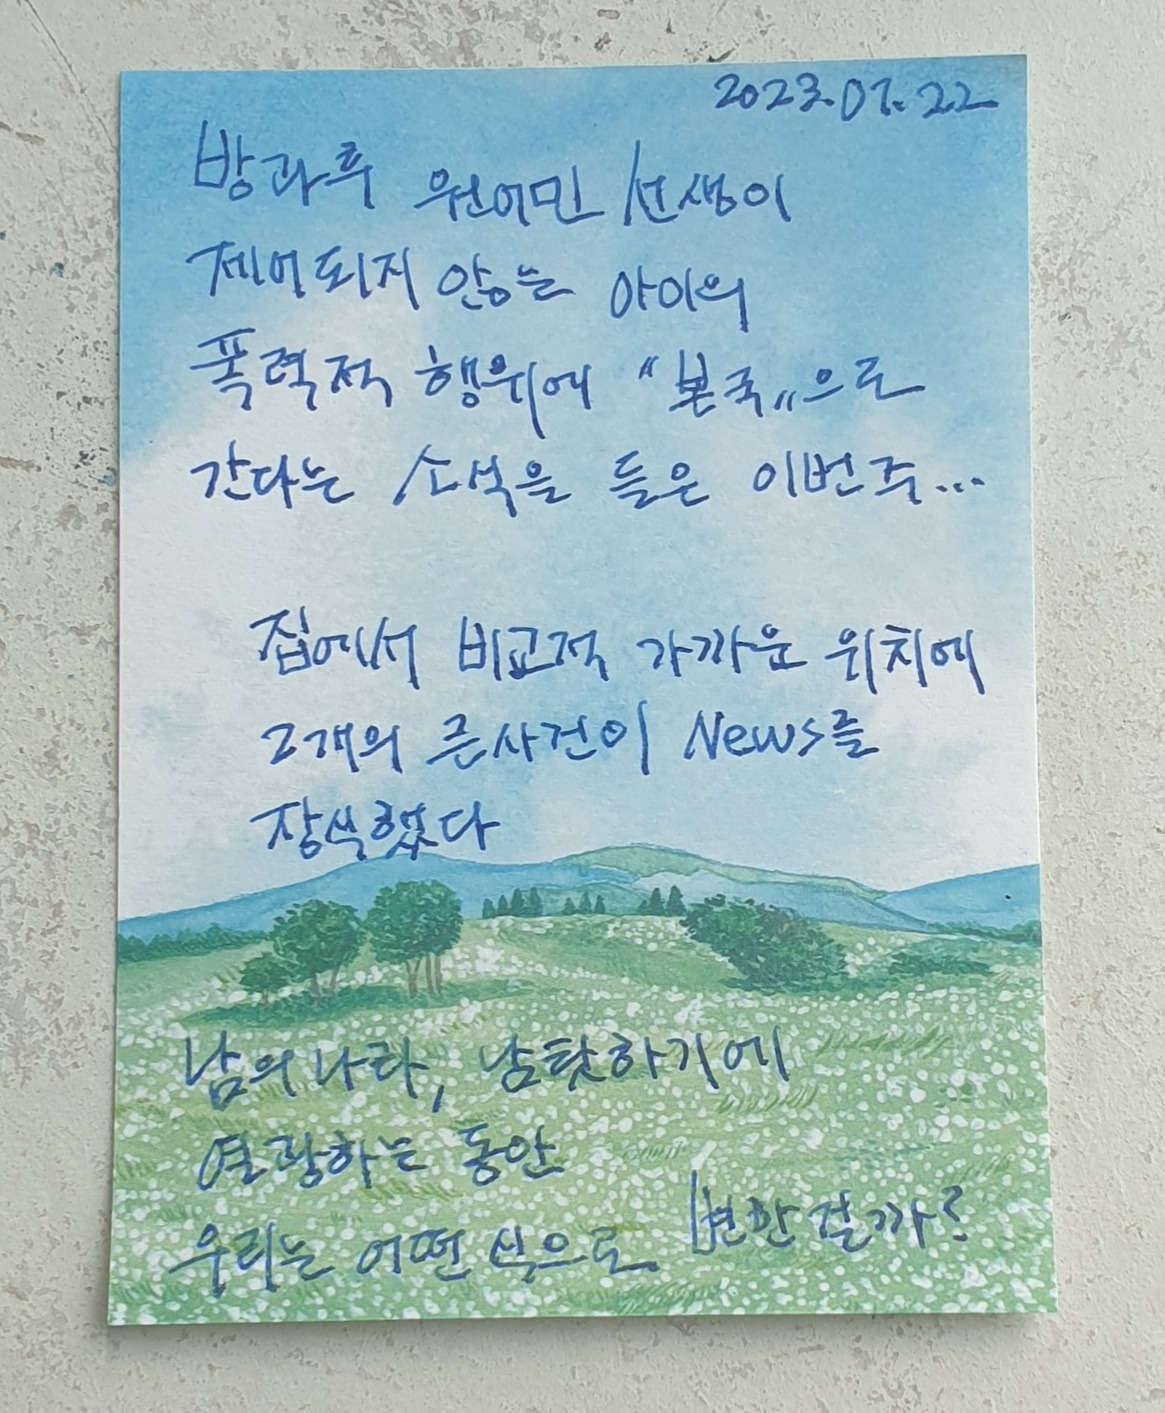 2023.07.22
방과후 원어민 선생이
제어되지 않는 아이의
폭력적 행위에 "본국"으로
간다는 소식을 들은 이번주...
집에서 비교적 가까운 위치에
2개의 큰사건이 News를
장식했다
남의 나라, 남탓하기에
열광하는 동안
우리는 어떤 식으로 변한 걸까?